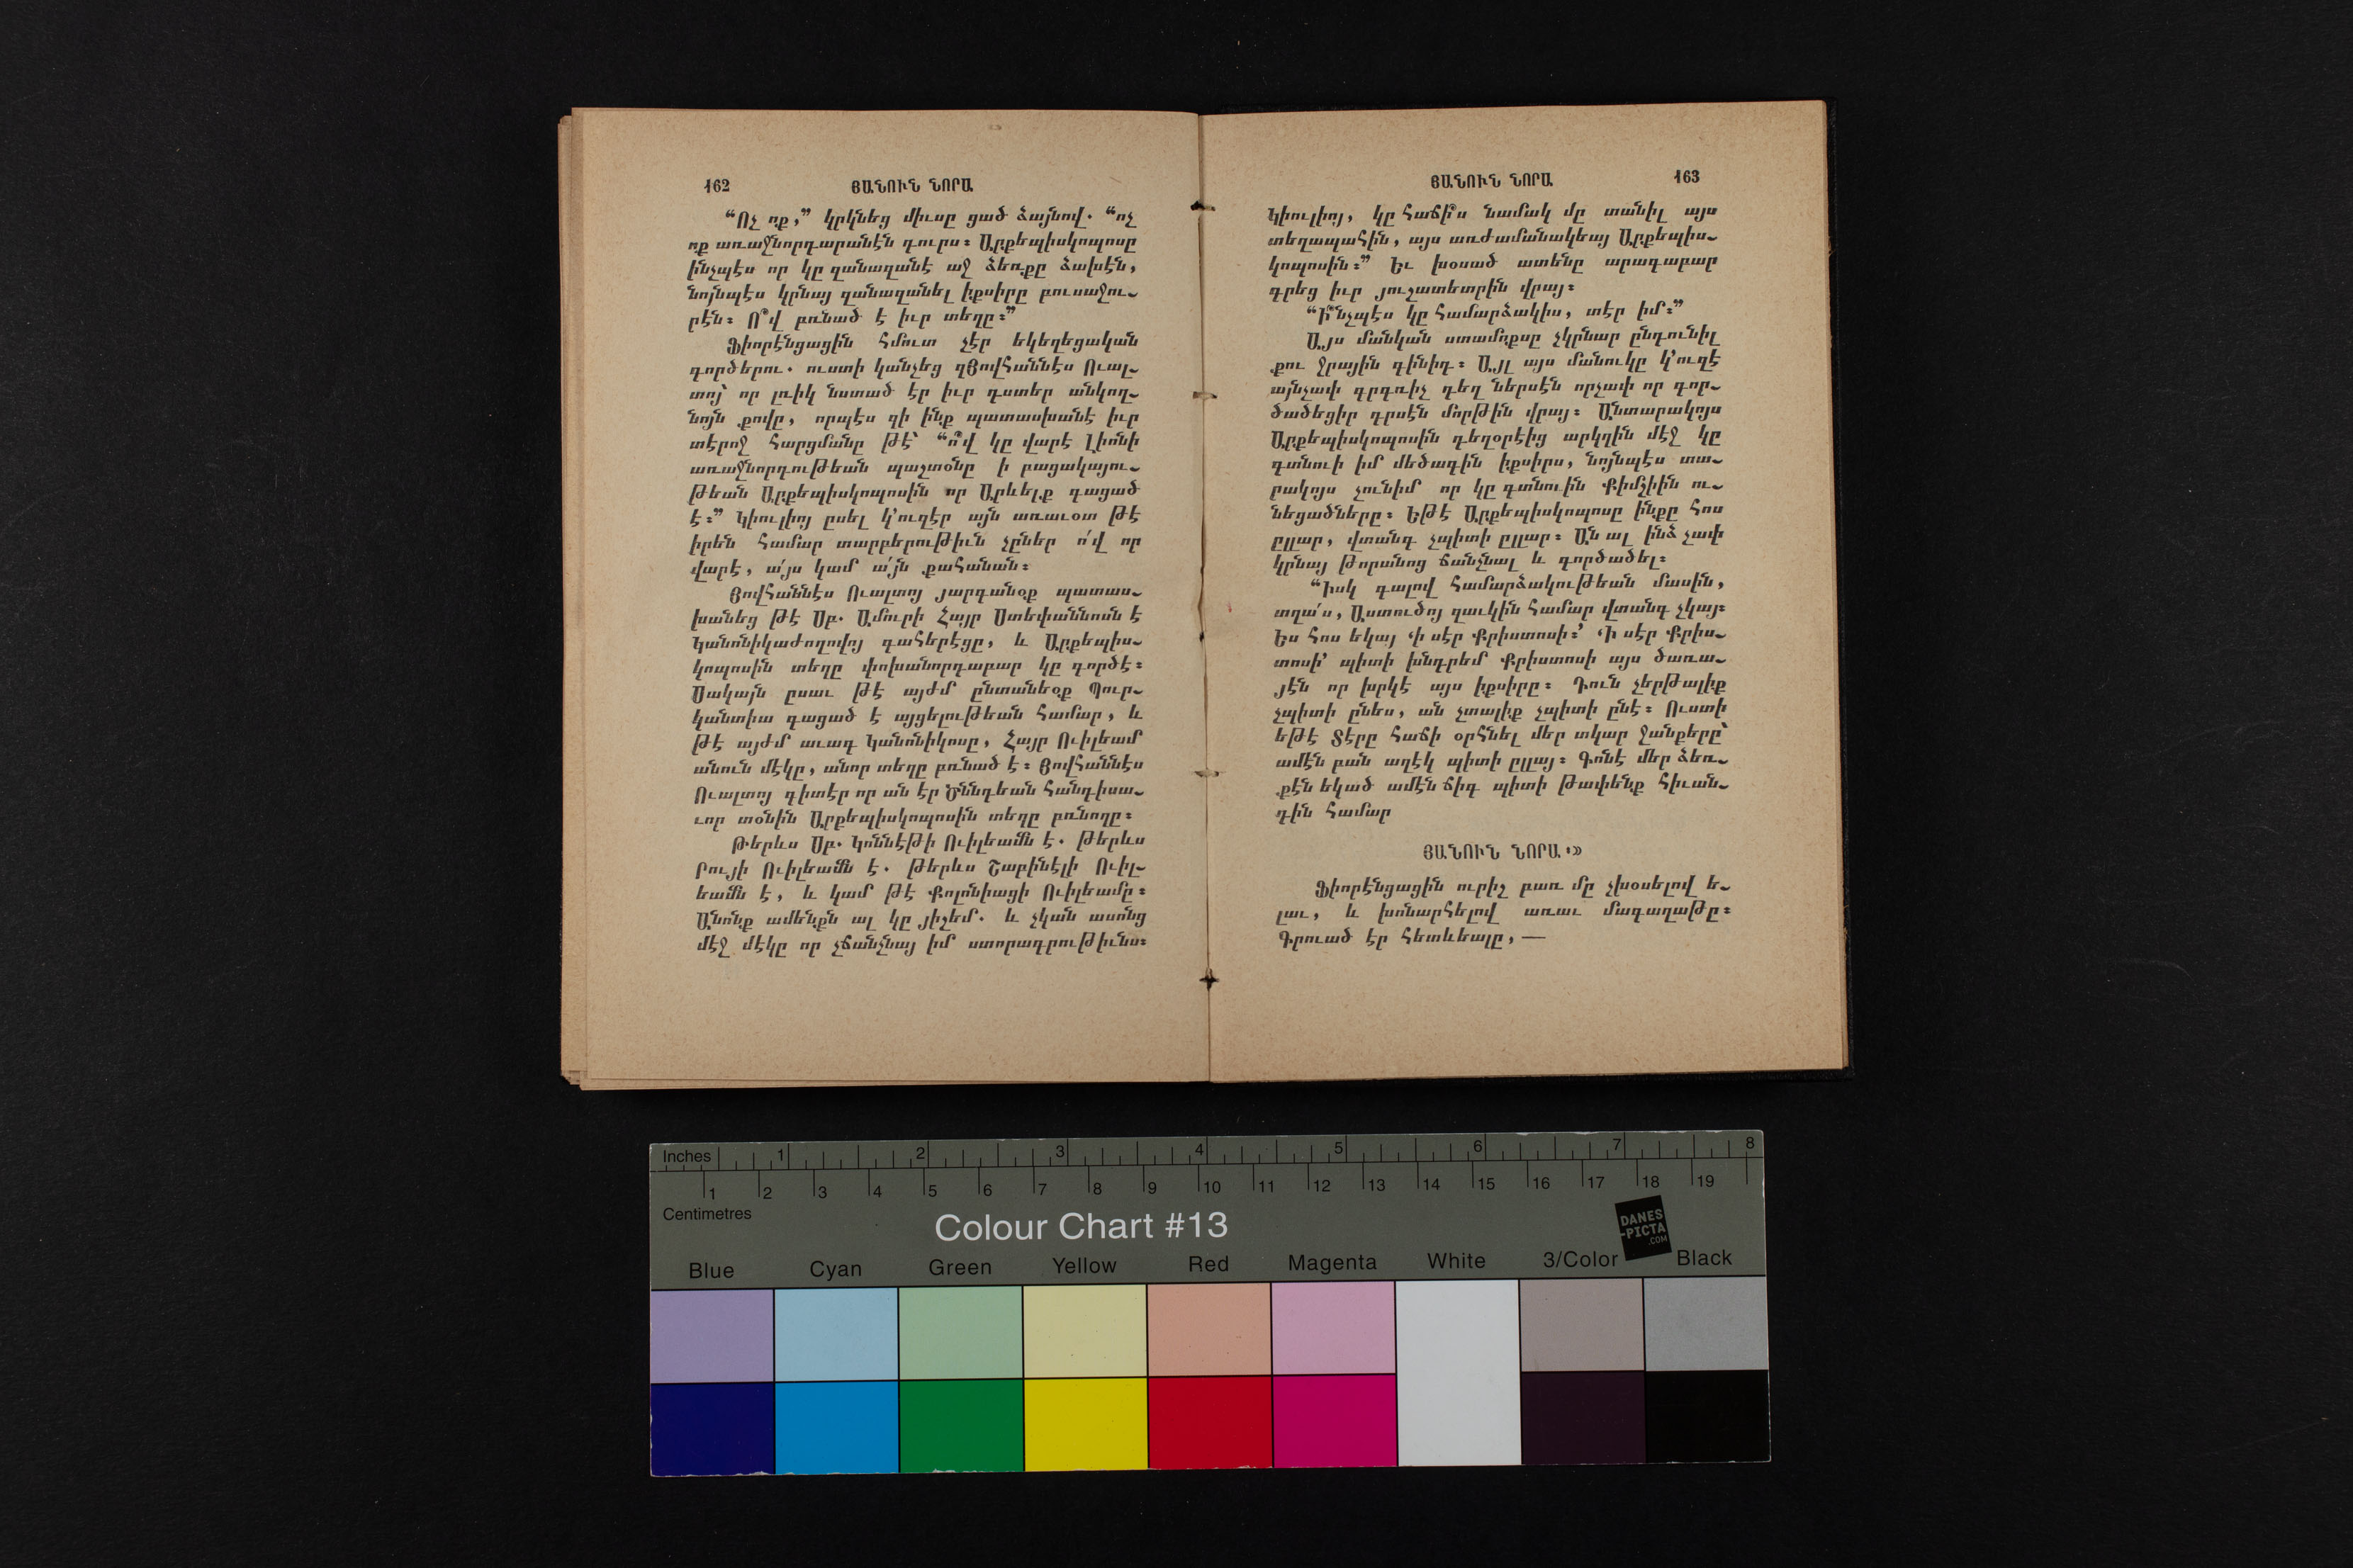 162 ՅԱՆՈՒՆ ՆՈՐԱ
“Ոչ ոք,” կրկնեց միւսը ցած ձայնով. “ոչ
ոք առաջնորդարանէն դուրս։ Արքեպիսկոպոսը
ինչպէս որ կը զանազանէ աջ ձեռքը ձախէն,
նոյնպէս կրնայ զանազանել իքսիրը բուսաջու-
րէն։ Ո՞վ բռնած է իւր տեղը։”
Ֆիորէնցացին հմուտ չէր եկեղեցական
գործերու. ուստի կանչեց զՅովհաննէս Ուալ-
տոյ՝ որ լռիկ նստած էր իւր դստեր անկող-
նոյն քովը, որպէս զի ինք պատասխանէ իւր
տէրոջ հարցմանը թէ՝ “ո՞վ կը վարէ Լիոնի
առաջնորդութեան պաշտօնը ի բացակայու-
թեան Արքեպիսկոպոսին որ Արևելք գացած
է։” Կիուլիոյ ըսել կ’ուզէր այն առաւօտ թէ
իրեն համար տարբերութիւն չըներ ո՛վ որ
վարէ, ա՛յս կամ ա՛յն քահանան։
Յովհաննէս Ուալտոյ յարգանօք պատաս-
խանեց թէ Սբ. Ամուրի Հայր Ստեփաննոսն է
Կանոնիկաժողովոյ գահերէցը, և Արքեպիս-
կոպոսին տեղը փոխանորդաբար կը գործէ։
Սակայն ըսաւ թէ այժմ ընտանեօք Պուր-
կանտիա գացած է այցելութեան համար, և
թէ այժմ աւագ Կանոնիկոսը, Հայր Ուիլեամ
անուն մէկը, անոր տեղը բռնած է։ Յովհաննէս
Ուալտոյ գիտէր որ ան էր Ծննդեան հանդիսա-
ւոր տօնին Արքեպիսկոպոսին տեղը բռնողը։
Թերևս Սբ. Կոննէթի Ուիլեամն է. թերևս
Րույի Ուիլեամն է. թերևս Շաբինէլի Ուիլ-
եամն է, և կամ թէ Քոլոնիացի Ուիլեամը։
Անոնք ամենքն ալ կը յիշեմ. և չկան ասոնց
մէջ մէկը որ չճանչնայ իմ ստորագրութիւնս։
ՅԱՆՈՒՆ ՆՈՐԱ 163
Կիուլիոյ, կը հաճի՞ս նամակ մը տանիլ այս
տեղապահին, այս առժամանակեայ Արքեպիս-
կոպոսին։” Եւ խօսած ատենը արագաբար
գրեց իւր յուշատետրին վրայ։
“Ի՞նչպէս կը համարձակիս, տէր իմ։”
Այս մանկան ստամոքսը չկրնար ընդունիլ
քու ջրային գինիդ։ Այլ այս մանուկը կ’ուզէ
այնչափ գրգռիչ դեղ ներսէն որչափ որ գոր-
ծածեցիր դրսէն մորթին վրայ։ Անտարակոյս
Արքեպիսկոպոսին դեղօրէից արկղին մէջ կը
գտնուի իմ մեծագին իքսիրս, նոյնպէս տա-
րակոյս չունիմ որ կը գտնուին Քիմչիին ու-
նեցածները։ Եթէ Արքեպիսկոպոսը ինքը հոս
ըլլար, վտանգ չպիտի ըլլար։ Ան ալ ինձ չափ
կրնայ թորանոց ճանչնալ և գործածել։
“Իսկ գալով համարձակութեան մասին,
տղա՛ս, Աստուծոյ զաւկին համար վտանգ չկայ։
Ես հոս եկայ ‘ի սէր Քրիստոսի։’ ‘Ի սէր Քրիս-
տոսի’ պիտի խնդրեմ Քրիստոսի այս ծառա-
յէն որ խրկէ այս իքսիրը։ Դուն չերթալիք
չպիտի ընես, ան չտալիք չպիտի ընէ։ Ուստի
եթէ Տէրը հաճի օրհնել մեր տկար ջանքերը՝
ամէն բան աղէկ պիտի ըլլայ։ Գոնէ մեր ձեռ-
քէն եկած ամէն ճիգ պիտի թափենք հիւան-
դին համար
ՅԱՆՈՒՆ ՆՈՐԱ։»
Ֆիորէնցացին ուրիշ բառ մը չխօսելով ե-
լաւ, և խոնարհելով առաւ մագաղաթը։
Գրուած էր հետևեալը, —
Inches 1 2 3 4 5 6 7 8
1 2 3 4 5 6 7 8 9 10 11 12 13 14 15 16 17 18 19
Centimetres
Colour Chart #13
DANES
-PICTA
.COM
Blue Cyan Green Yellow Red Magenta White 3/Color Black